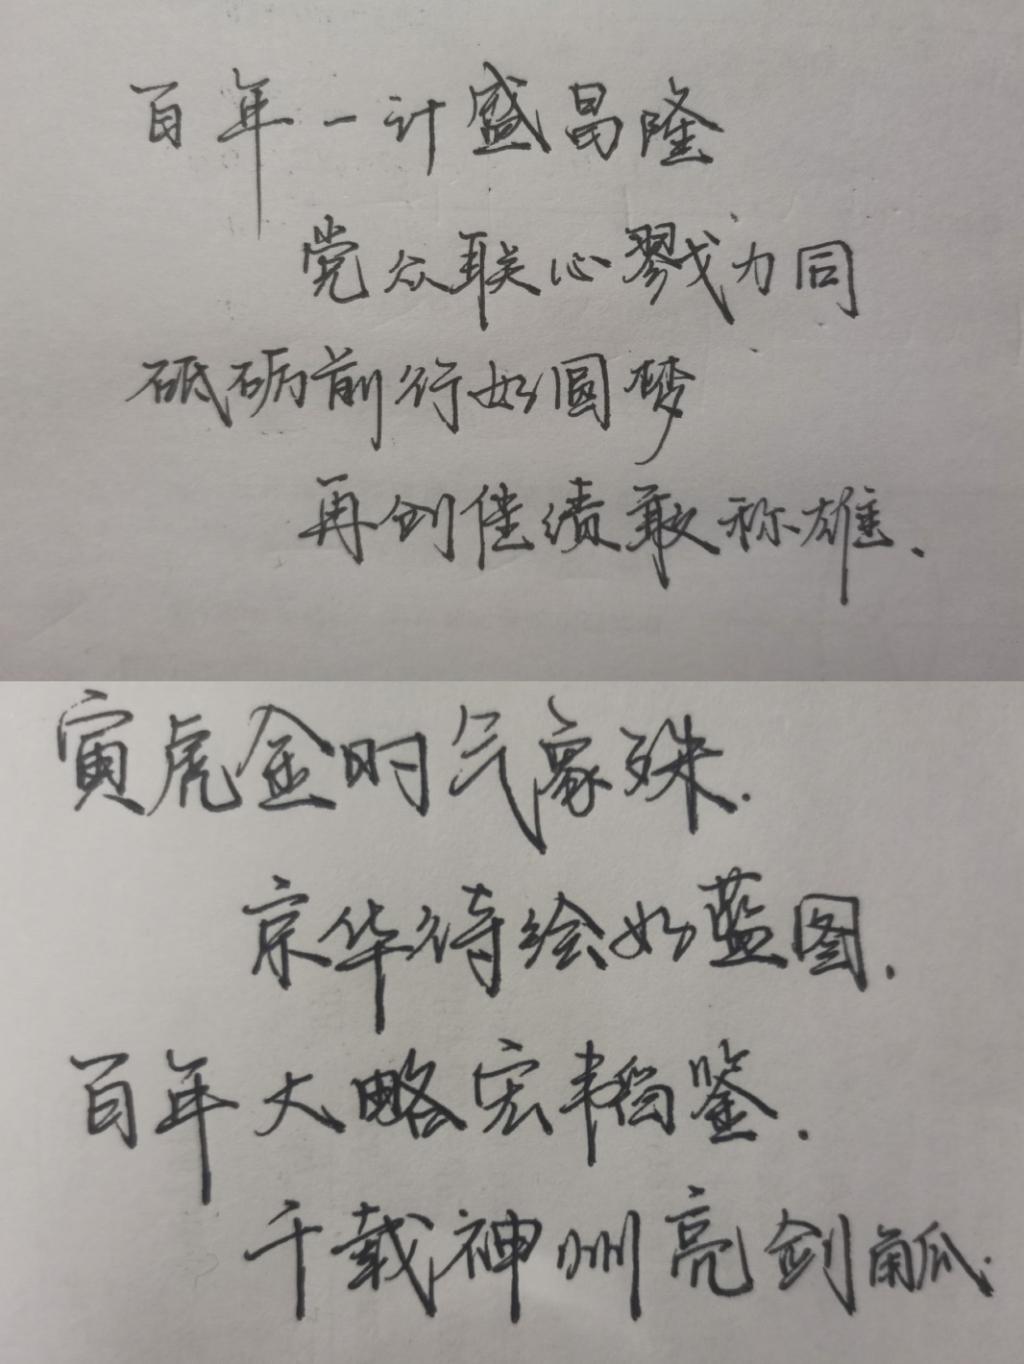 百年一计盛昌隆
党众联心戮力同
砥砺前行如圆梦
再创佳绩敢称雄.
寅虎金时气象殊.
京华待绘如蓝图.
百年大略宏韬鉴.
千载神州亮剑觚.